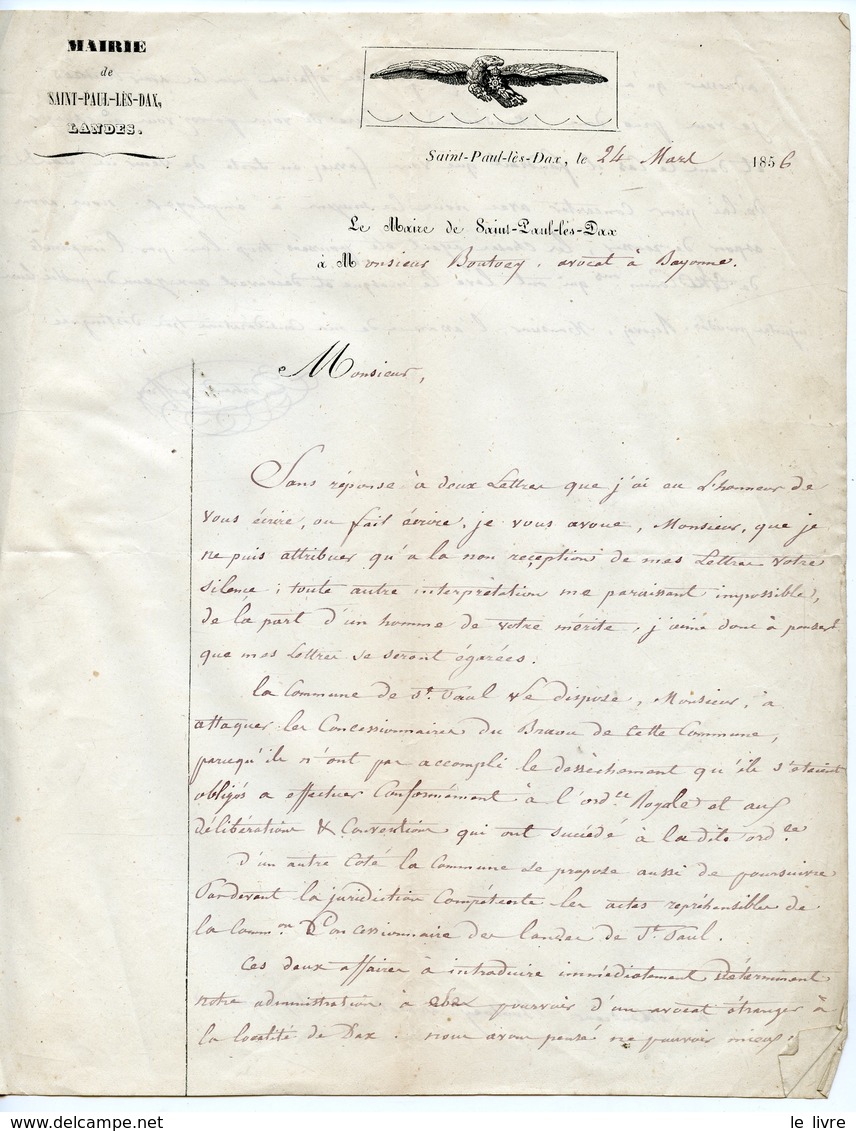 MAIRIE
de
SAINT-PAUL-LÈS-DAX,
LANDES.
Saint-Paul-lès-Dax, le 24 Mars 1856
Le Maire de Saint-Paul-lès-Dax
à Monsieur Boutoey, avocat à Bayonne.
Monsieur,
Sans réponse à deux Lettres que j'ai eu L'honneur de
vous écrire, ou fait écrire, je vous avoue, Monsieur, que je
ne puis attribuer qu'a la non reception de mes Lettres votre
silence ; toute autre interprétation me paraissant impossible,
de la part d'un homme de votre mérite, j'aime donc à penser
que mes Lettres se seront égarées.
La Commune de St. Paul se dispose, Monsieur, à
attaquer les Concessionnaires du Braou de Cette Commune,
parcequ'ils n'ont pas accompli le dessèchement qu'ils s'étaient
obligés a effectuer Conformément à l'ord.ce Royale et aux
délibérations & Conventions qui ont succédé à la dite ord.ce
D'un autre Coté la Commune se propose aussi de poursuivre
Pardevant la juridiction Compétente les actes repréhensibles de
la Comm.on Concessionnaire des landes de St. Paul.
Ces deux affaires à introduire immédiatement déterminent
notre administration à pourvoir d'un avocat étranger à
la localité de Dax. nous avons pensé ne pouvoir mieux
le livre